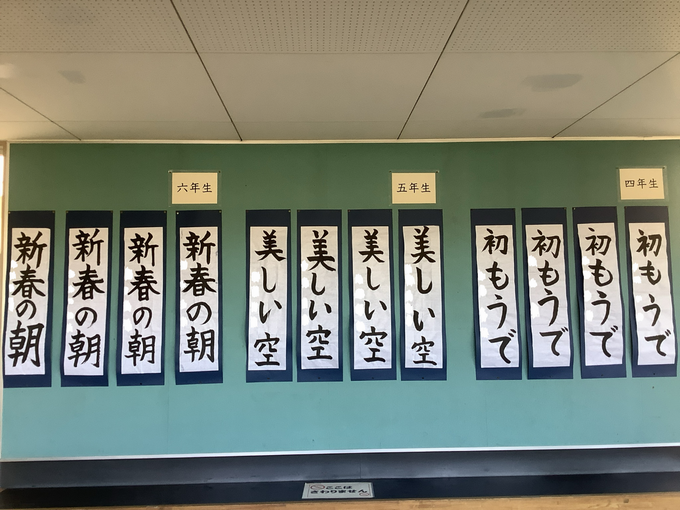 六年生
五年生
四年生
新春の朝
新春の朝
新春の朝
新春の朝
美しい空
美しい空
美しい空
美しい空
初もうで
初もうで
初もうで
初もうで
ここは
さわりません